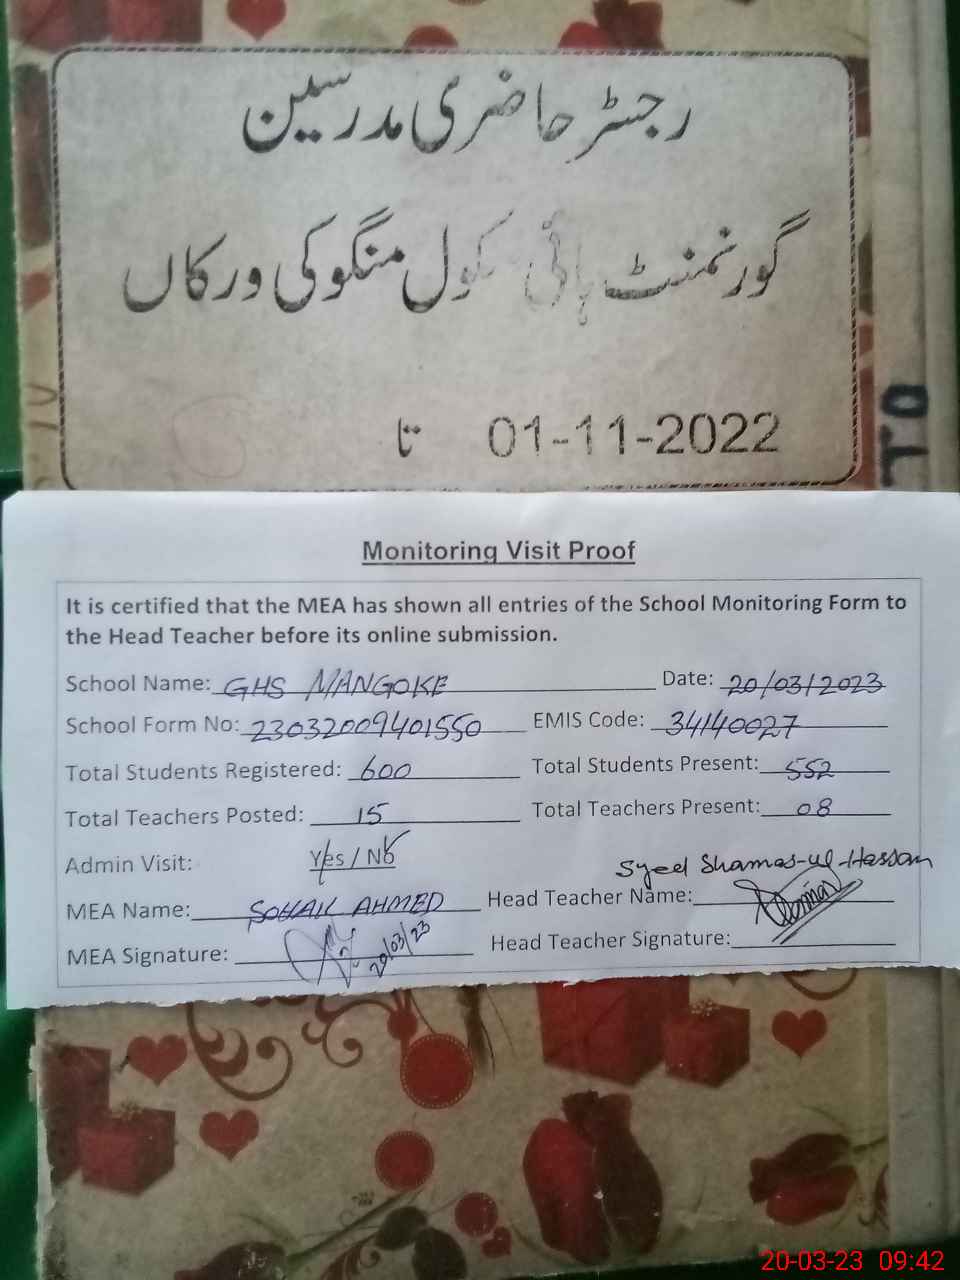 رجسٹر حاضری مدرسین
گورنمنٹ ہائی سکول منگوکی ورکاں
01-11-2022 تا
TO
Monitoring Visit Proof
It is certified that the MEA has shown all entries of the School Monitoring Form to
the Head Teacher before its online submission.
School Name: GHS MANGOKE Date: 20/03/2023
School Form No: 23032009401550 EMIS Code: 34140027
Total Students Registered: 600 Total Students Present: 552
Total Teachers Posted: 15 Total Teachers Present: 08
Admin Visit: Yes / No
Syed Shamas-ul-Hassan
MEA Name: SOHAIL AHMED Head Teacher Name:
MEA Signature: 20/03/23 Head Teacher Signature:
20-03-23 09:42